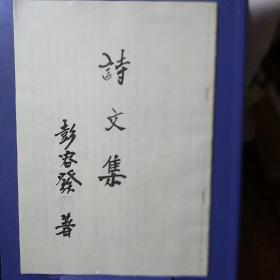 詩文集
彭容發 著